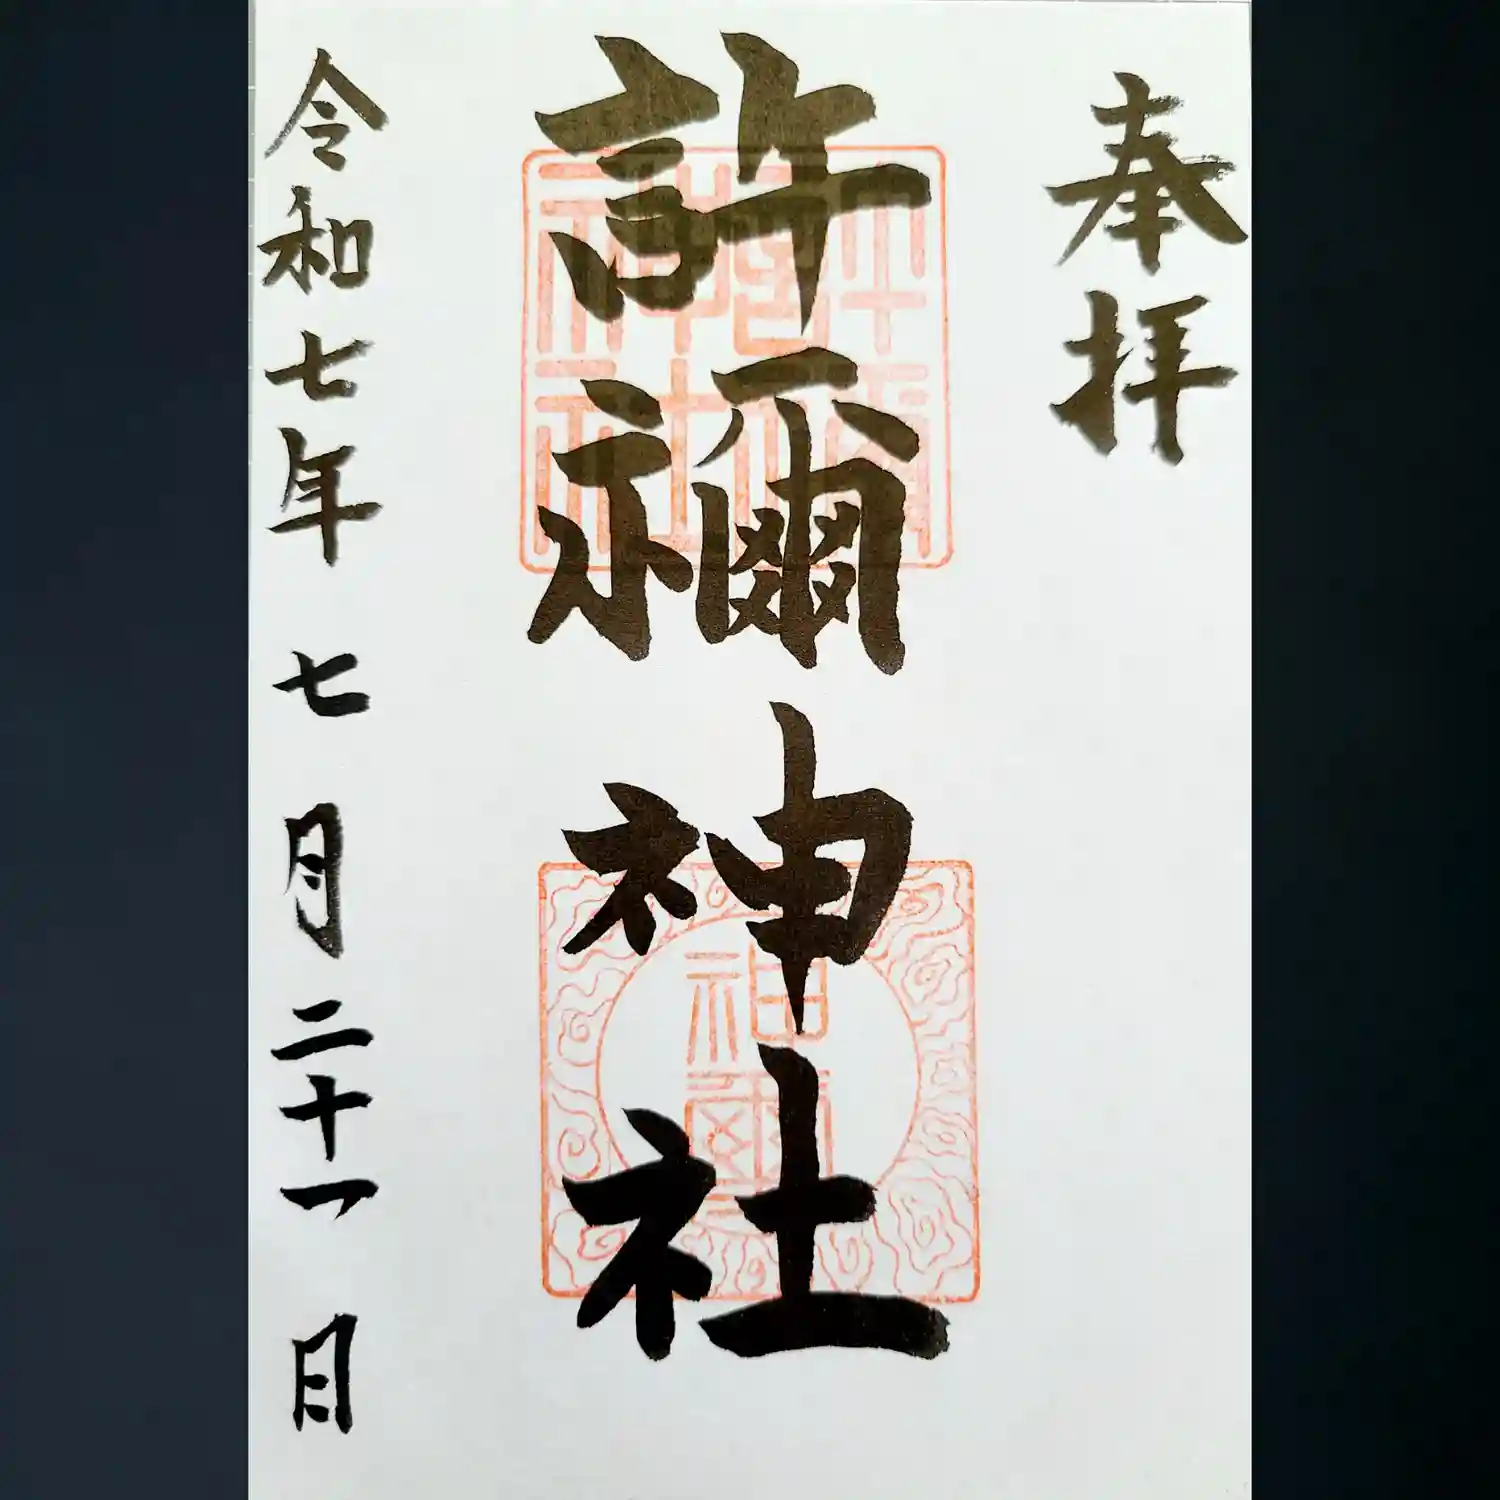 奉拝
許禰神社
令和七年 七月二十一日